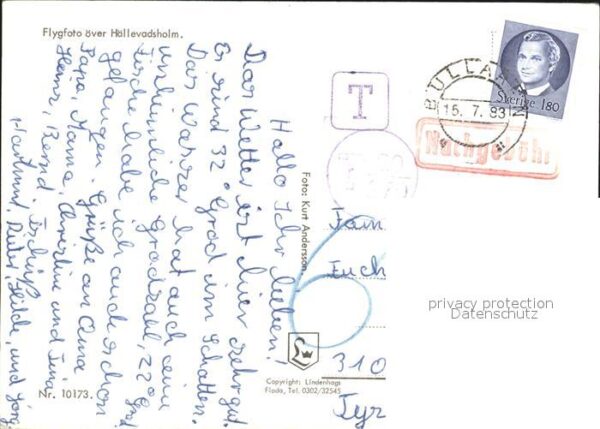 Flygfoto över Hällevadsholm.
Hallo Ihr Lieben!
Das Wetter ist hier sehr gut.
Es sind 32° Grad im Schatten.
Das Wasser hat auch eine
unheimliche Gradzahl, 22° Grad
Fische habe ich auch schon
gefangen. Grüße an Oma
Papa, Mama, Christine und
Heinz, Bernd.
Hartmut, Dieter, Hilde, und Jörg
Nr. 10173.
Foto: Kurt Andersson.
Copyright: Lindenhags
Floda, Tel. 0302/32545
T
BULLAREN
15. 7. 83
Sverige 180
Nachgebühr
6
Fam
Euch
310
Tyr
privacy protection
Datenschutz